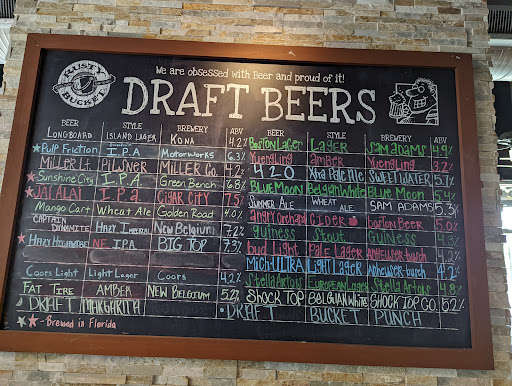 RUSTY BUCKET
We are obsessed with Beer and proud of it!
DRAFT BEERS
BEER STYLE BREWERY ABV BEER STYLE BREWERY ABV
LONGBOARD ISLAND LAGER KONA 4.2% Boston Lager LAGER SAM ADAMS 4.9%
★ Pulp Friction I.P.A Motorworks 6.3% Yuengling amBer Yuengling 3.2%
MILLER Lt. PILSNER MILLER Co. 4.2% 420 Xtra Pale Ale SWEETWATER 5.7%
★ Sunshine City I.P.A Green Bench 6.8% BLUE MOON Belgian White Blue Moon 5.4%
★ JAI ALAI I.P.a. CIGAR CITY 7.5% SUMMER ALE WHEAT ALE SAM ADAMS 5.3%
Mango Cart Wheat Ale Golden Road 4.0% angry Orchard CIDER boston Beer 5.0%
CAPTAIN DYNAMITE HAZY IMPERIAL New Belgium 7.2% guiness Stout GUINESS 4.3%
★ HAZY NE. I.P.A. BIG TOP 7.3% bud Light Pale Lager anheuser-burch 4.2%
Mich ULTRA Light Lager anheuser-burch 4.2%
Coors Light Light Lager Coors 4.2% Stella Artois EUROPEAN Lager Stella Artois 4.8%
FAT TIRE AMBER NEW BELGIUM 5.2% SHOCK TOP BELGIAN WHITE SHOCK TOP CO. 5.2%
• DRAFT MARGARITA • DRAFT BUCKET PUNCH
★ ★ - Brewed in Florida